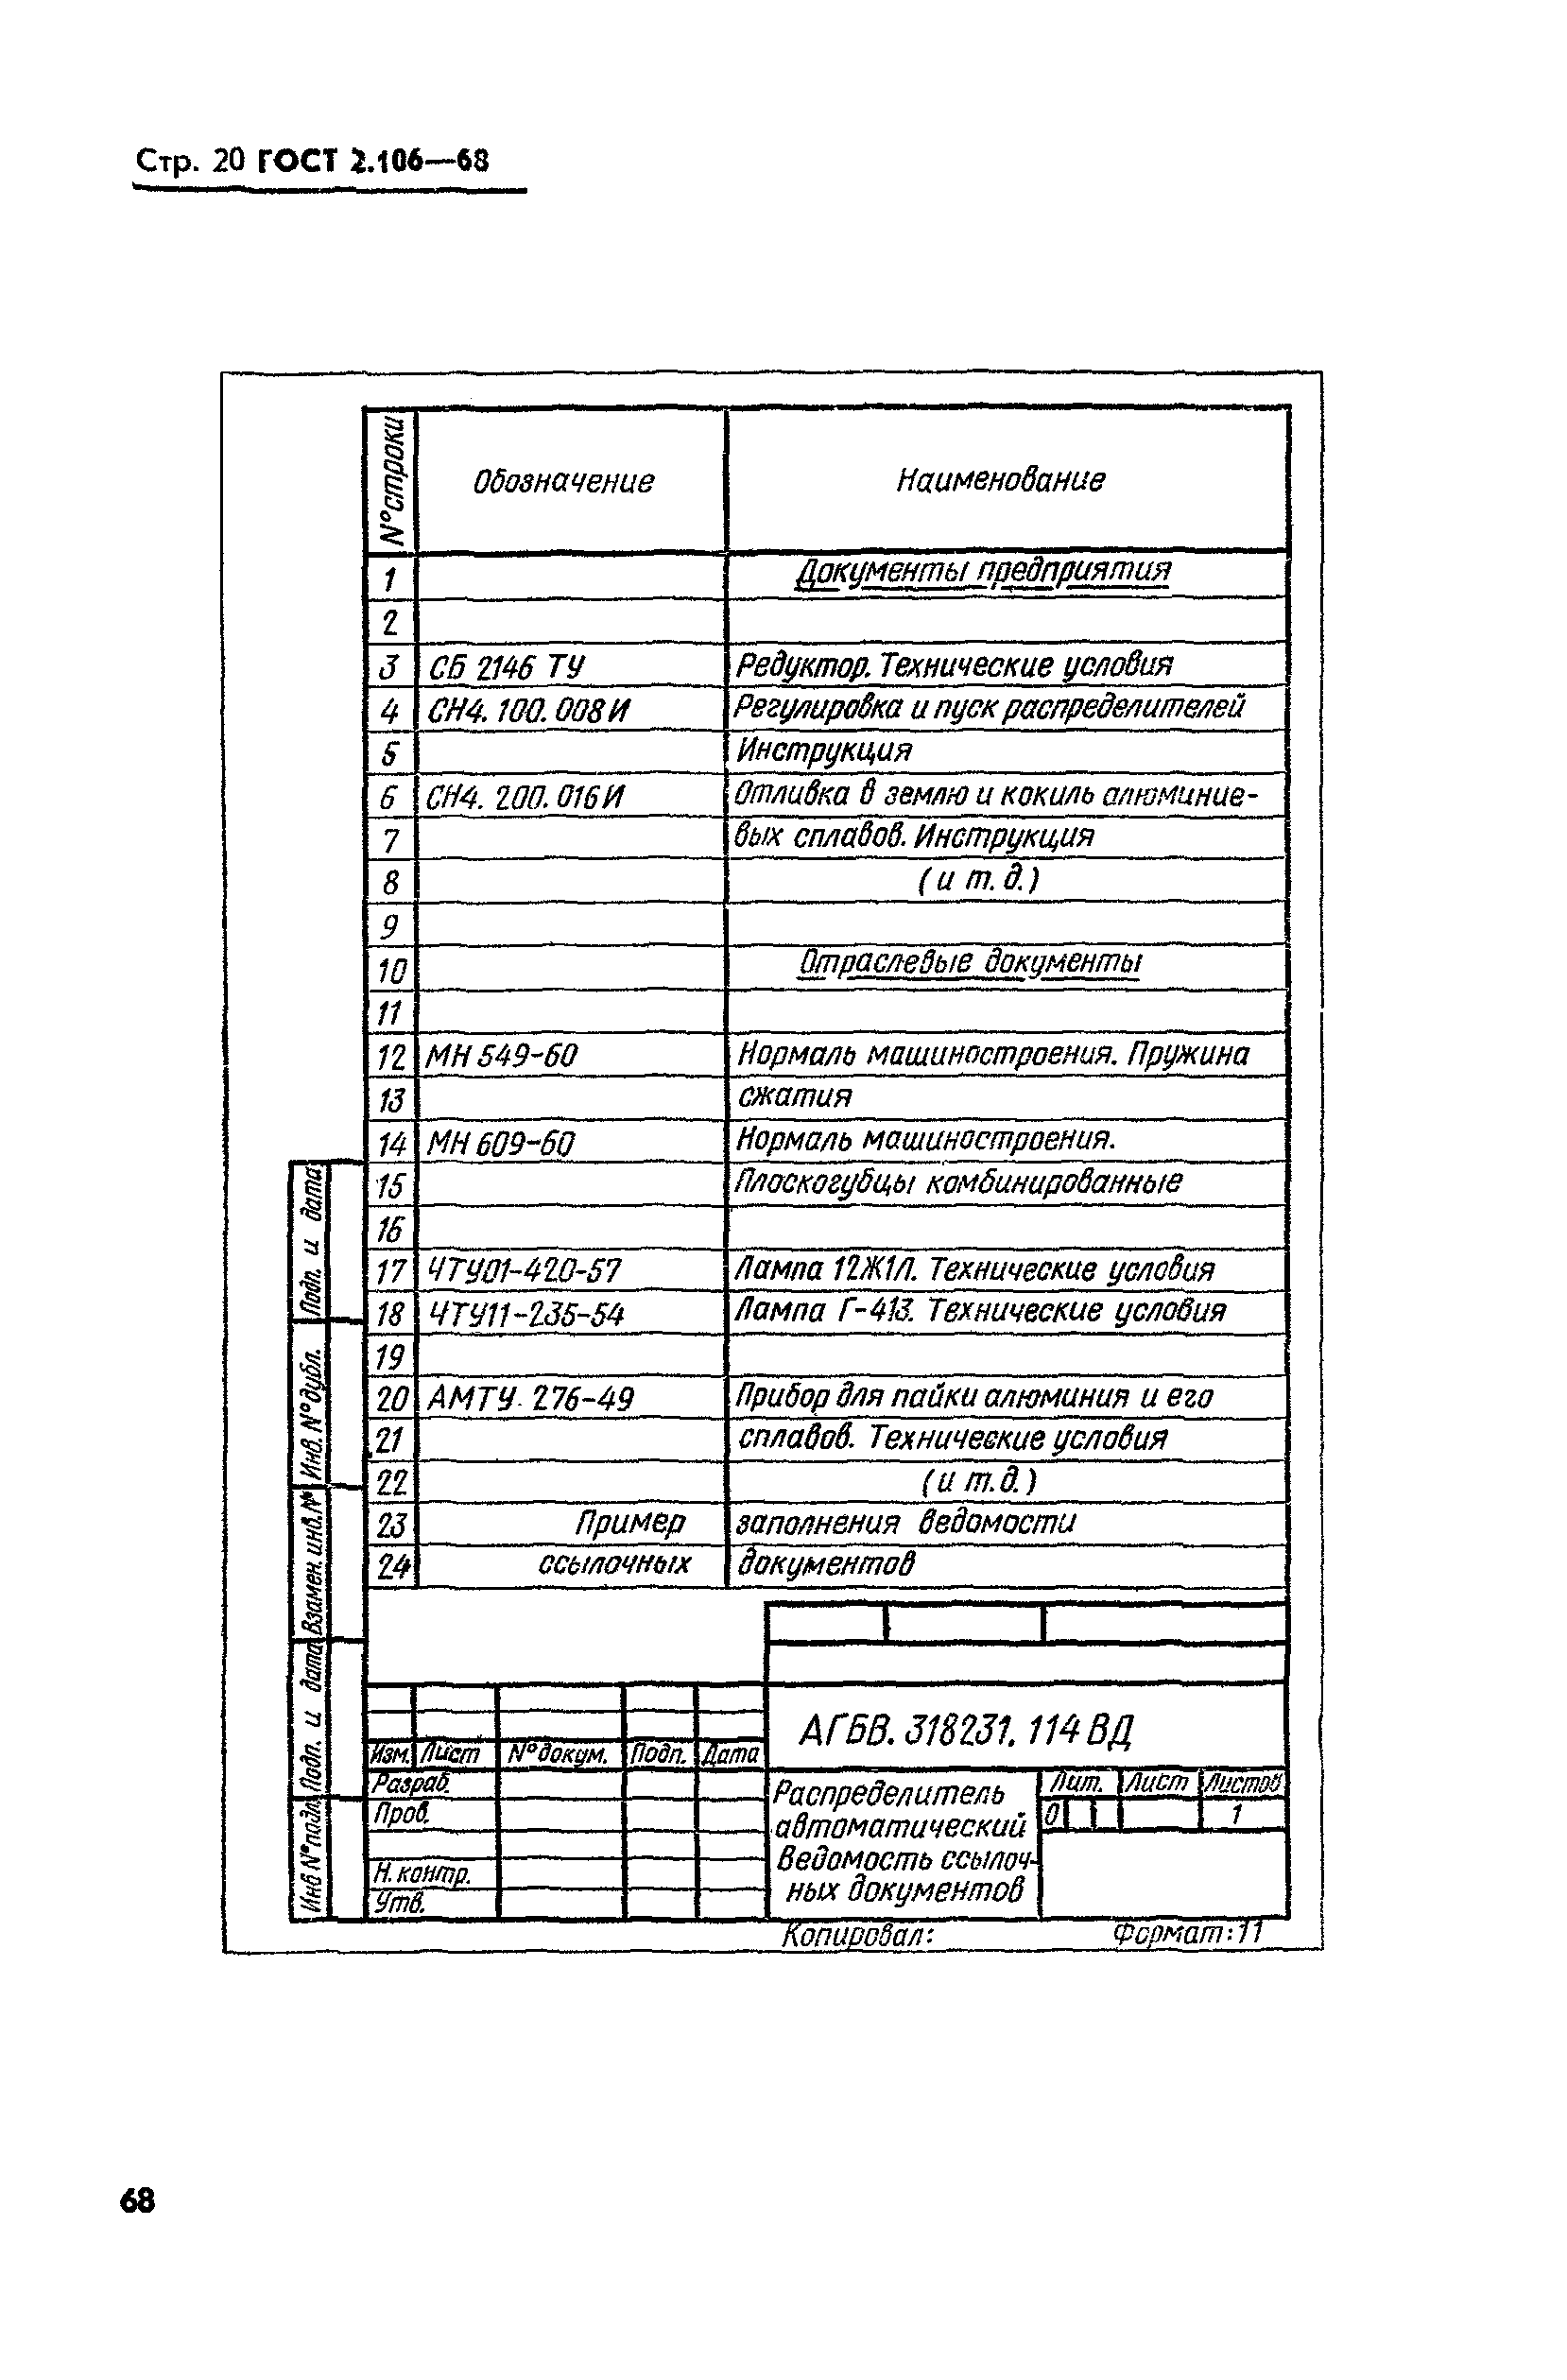 Стр. 20 ГОСТ 2.106—68
N° строки Обозначение Наименование
1 Документы предприятия
2
3 СБ 2146 ТУ Редуктор. Технические условия
4 СН4. 100. 008 И Регулировка и пуск распределителей
5 Инструкция
6 СН4. 200. 016 И Отливка в землю и кокиль алюминие-
7 вых сплавов. Инструкция
8 (и т. д.)
9
10 Отраслевые документы
11
12 МН 549-60 Нормаль машиностроения. Пружина
13 сжатия
14 МН 609-60 Нормаль машиностроения.
15 Плоскогубцы комбинированные
16
17 ЧТУ01-420-57 Лампа 12Ж1Л. Технические условия
18 ЧТУ11-235-54 Лампа Г-413. Технические условия
19
20 АМТУ. 276-49 Прибор для пайки алюминия и его
21 сплавов. Технические условия
22 (и т. д.)
23 Пример заполнения ведомости
24 ссылочных документов
Подп. и дата
Инв. N° дубл.
Взамен. инв. N°
Подп. и дата
Инв N° подл.
АГБВ. 318231. 114 ВД
Изм. Лист N° докум. Подп. Дата
Разраб.
Пров.
Н. контр.
Утв.
Распределитель
автоматический
Ведомость ссылоч-
ных документов
Лит. Лист Листов
О 1
Копировал: Формат: 11
68